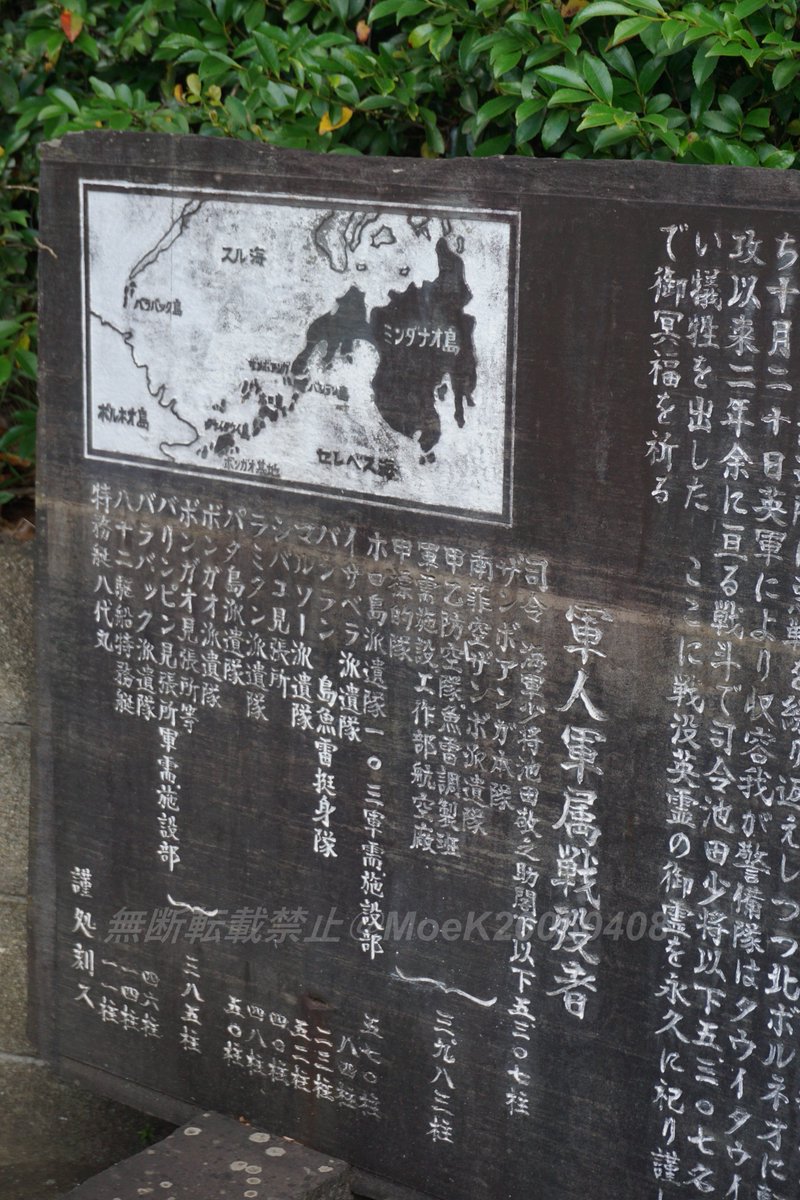 で御冥福を祈る
い犠牲を出した ここに戦没英霊の御霊を永久に祀り謹
攻以来二年余に亘る戦斗で司令池田少将以下五三〇七名
ち十月二十日英軍により収容我が警備隊はタウイタウイ
返えしつつ北ボルネオに
軍人軍属戦殁者
司令 海軍少将池田敬之助閣下以下五三〇七柱
ザンボアンガ本隊
南菲空ザンボ派遣隊
甲乙防空隊魚雷調製班
軍需施設工作部航空廠
甲標的隊
三、九八三柱
ホロ島派遣隊一〇三軍需施設部
五七〇柱
イサベラ派遣隊
八四柱
バンラン島魚雷挺身隊
二三柱
マルソー派遣隊
五二柱
シバコ見張所
四〇柱
ラミタン派遣隊
四八柱
パタ島派遣隊
五〇柱
ボンガオ派遣隊
ボンガオ見張所等
バリンピン見張所軍需施設部
三八五柱
バラバック派遣隊
四六柱
八十二駆船特務艇
一四柱
特務艇八代丸
一一柱
謹処刻ス
スル海
バラバック島
ミンダナオ島
ボルネオ島
ボンガオ基地
セレベス海
無断転載禁止@MoeK20